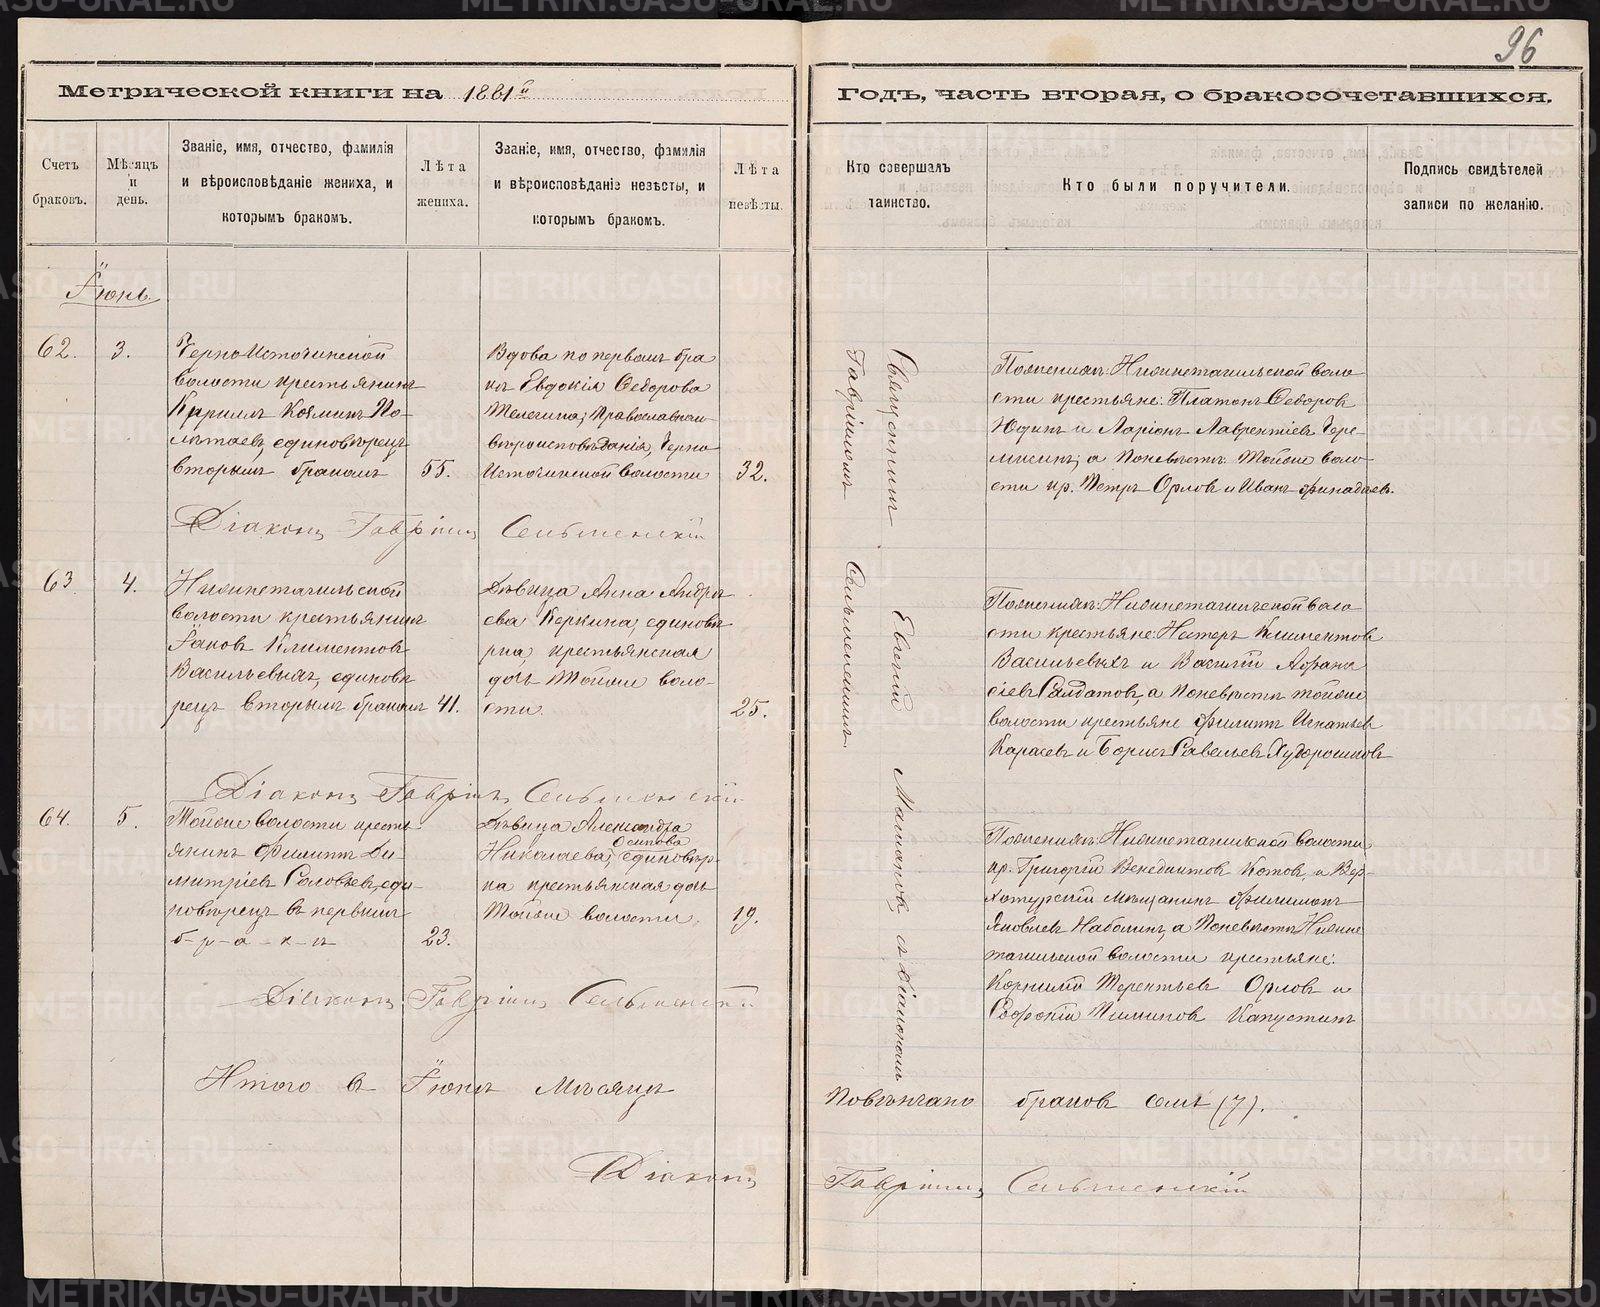 96
Метрической книги на 1881й
Годъ, часть вторая, о бракосочетавшихся.
Счетъ браковъ.
Мѣсяцъ и день.
Званіе, имя, отчество, фамилія
и вѣроисповѣданіе жениха, и
которымъ бракомъ.
Лѣта жениха.
Званіе, имя, отчество, фамилія
и вѣроисповѣданіе невѣсты, и
которымъ бракомъ.
Лѣта невѣсты.
Кто совершалъ
таинство.
Кто были поручители.
Подпись свидѣтелей
записи по желанію.
Іюнь.
62. 3.
Черноисточинской
волости крестьянинъ
Кириллъ Козминъ По-
лѣтаевъ, единовѣрецъ
вторымъ бракомъ 55.
Вдова по первомъ бра
кѣ Евдокія Ѳедорова
Телегина, Православнаго
вѣроисповѣданія, Черно
источинской волости 32.
Поженихѣ: Нижнетагильской воло
сти крестьяне: Платонъ Ѳедоровъ
Юдинъ и Ларіонъ Лаврентіевъ Чере
мисинъ, а поневѣстѣ: Тойже воло
сти кр. Петръ Орловъ и Иванъ
Діаконъ Гавріилъ Сельменскій
63 4.
Нижнетагильской
волости крестьянинъ
Іаковъ Климентовъ
Васильевыхъ, единовѣ
рецъ вторымъ бракомъ 41.
Дѣвица Анна Андре
ева Керкина, единовѣ
рка, крестьянская
дочь Тойже воло-
сти. 25.
Поженихѣ: Нижнетагильской воло
сти крестьяне: Нестеръ Климентовъ
Васильевыхъ и Василій Афана
сіевъ Салдатовъ, а поневѣстѣ тойже
волости крестьяне Филиппъ Игнатьевъ
Карасевъ и Борисъ Савельевъ Худорошковъ
Діаконъ Гавріилъ Сельменскій
64. 5.
Тойже волости кресть
янинъ Филиппъ Ди-
митріевъ Соловьевъ, еди-
новѣрецъ въ первымъ
б-р-а-к-ъ 23.
Дѣвица Александра
Николаева Осипова, единовѣр-
ка крестьянская дочь
Тойже волости. 19.
Поженихѣ: Нижнетагильской волости
кр. Григорій Венедиктовъ Котовъ, и Вер-
хотурскій мѣщанинъ Филимонъ
Яковлевъ Наболинъ, а поневѣстѣ Нижне
тагильской волости крестьяне:
Корнилій Терентьевъ Орловъ и
Софроній Тимиковъ Капустинъ
Діаконъ Гавріилъ Сельменскій
Священникъ Евгеній съ діакономъ
Гавріиломъ Сельменскимъ
Итого въ Іюнѣ мѣсяцѣ
Повѣнчано браковъ семь (7).
Діаконъ
Гавріилъ Сельменскій
METRIKI.GASO-URAL.RU